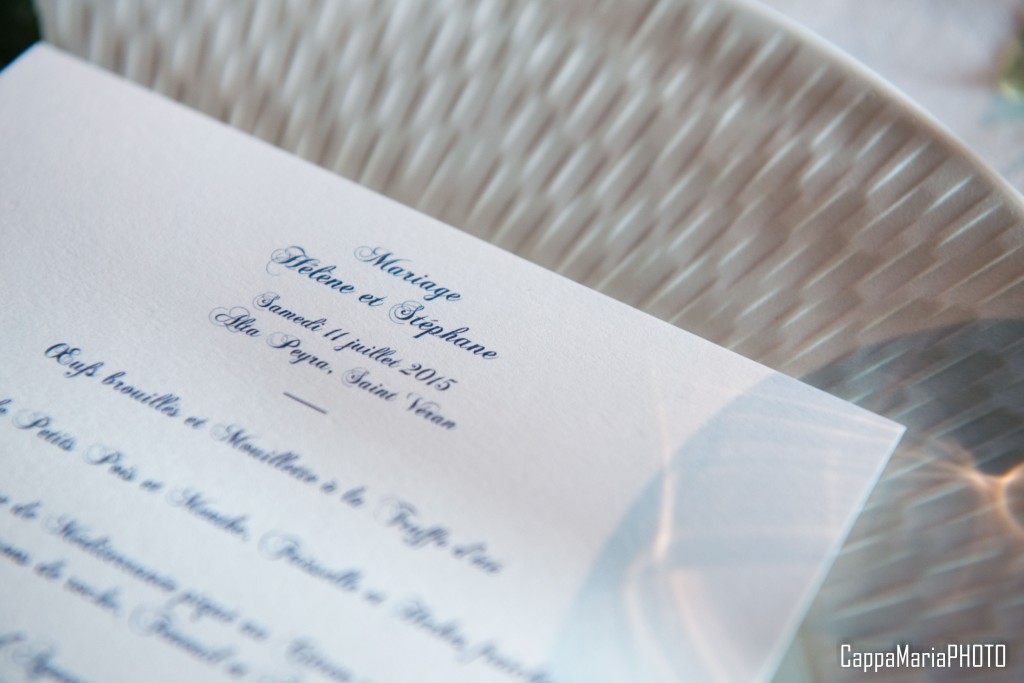 Mariage
Hélène et Stéphane
Samedi 11 juillet 2015
Alta Peyra, Saint Véran
Œufs brouillés et Mouillette à la Truffe d'été
Petits Pois et Menthe, Faisselle et Herbes,
de Méditerranée piqué au Citron
de roche, Fenouil
CappaMariaPHOTO